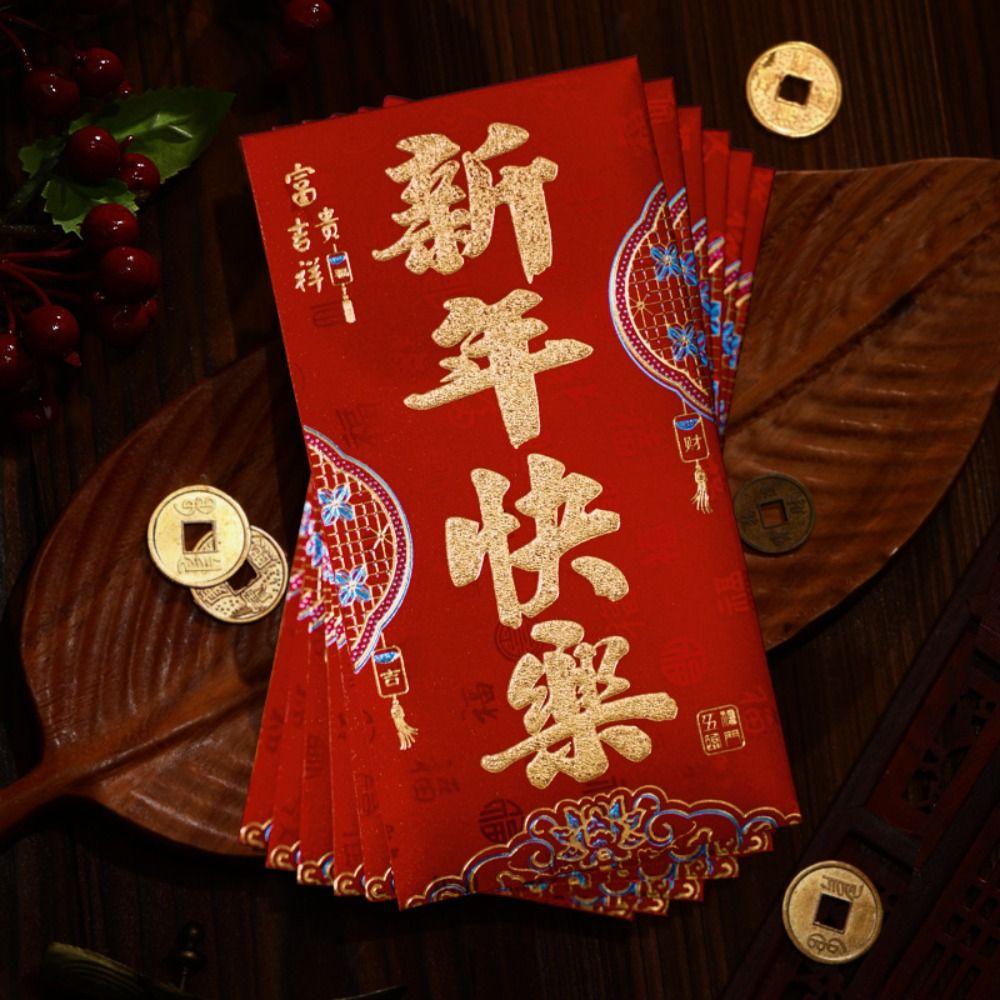 新年快樂
富贵吉祥
财
吉
五福
臨門